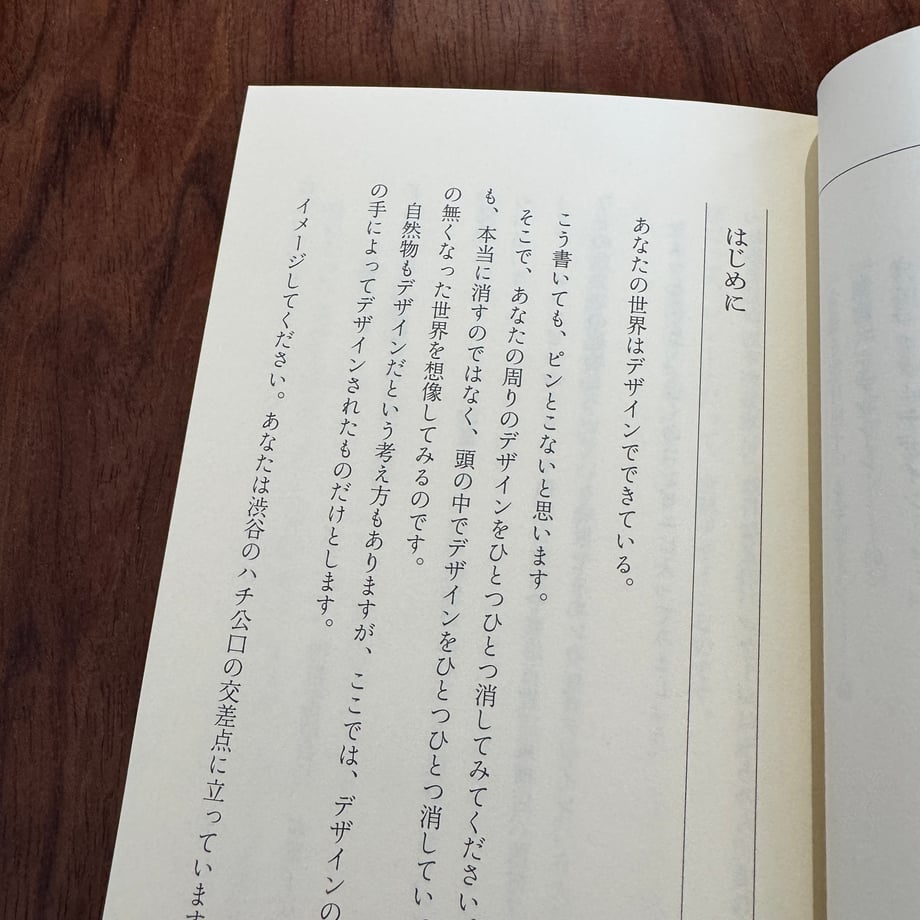 はじめに
あなたの世界はデザインでできている。
こう書いても、ピンとこないと思います。
そこで、あなたの周りのデザインをひとつひとつ消してみてください。
も、本当に消すのではなく、頭の中でデザインをひとつひとつ消してい
の無くなった世界を想像してみるのです。
自然物もデザインだという考え方もありますが、ここでは、デザインの
の手によってデザインされたものだけとします。
イメージしてください。あなたは渋谷のハチ公口の交差点に立っています